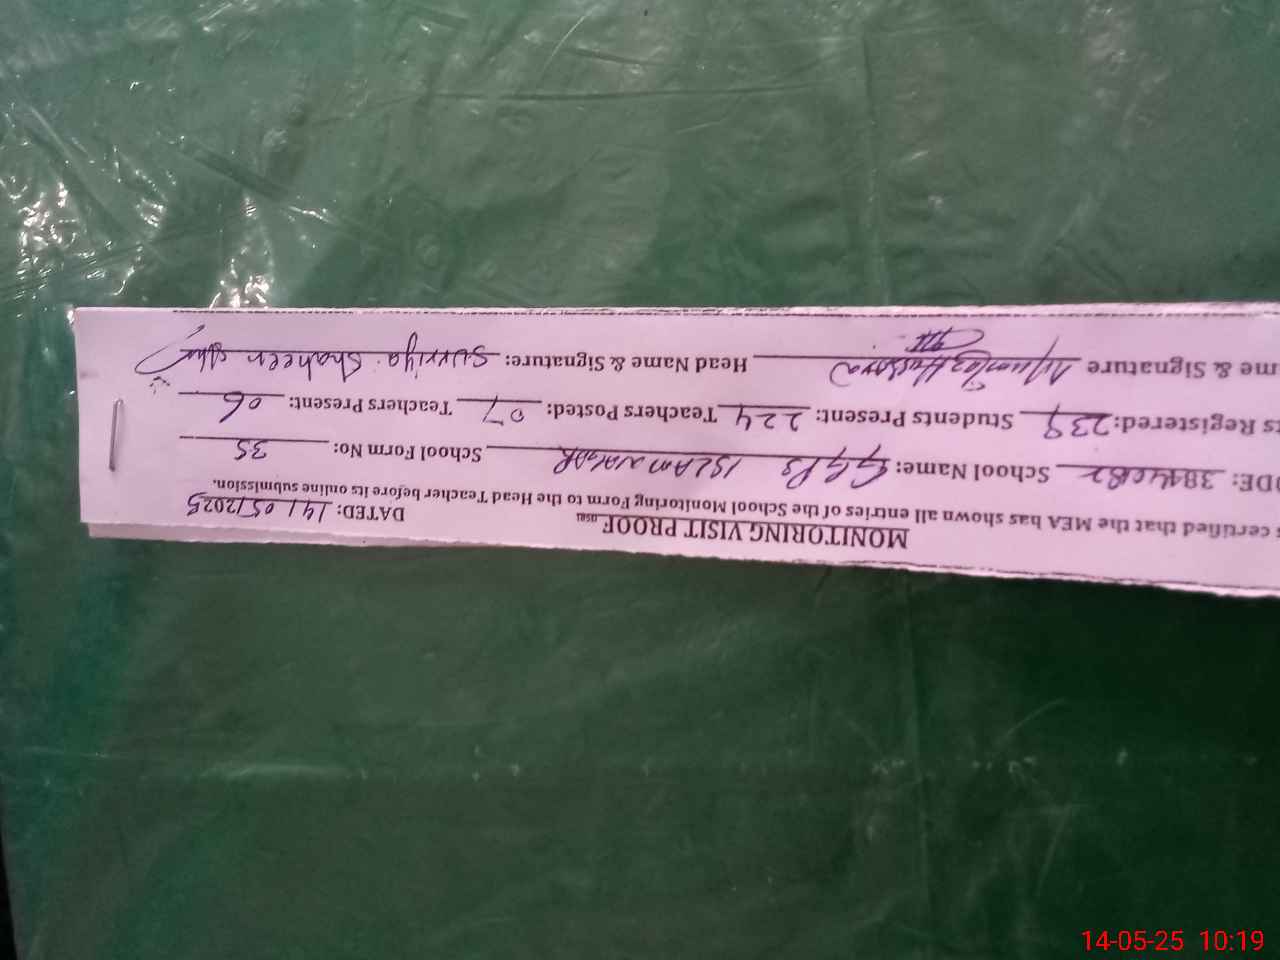 MONITORING VISIT PROOF DATED: 14/05/2025
certified that the MEA has shown all entries of the School Monitoring Form to the Head Teacher before its online submission.
ODE: School Name: GGPS ISLAM NAGAR School Form No: 35
ts Registered: 239 Students Present: 224 Teachers Posted: 07 Teachers Present: 06
me & Signature Mumtaz Hussain Head Name & Signature: Surriya Shaheen
14-05-25 10:19